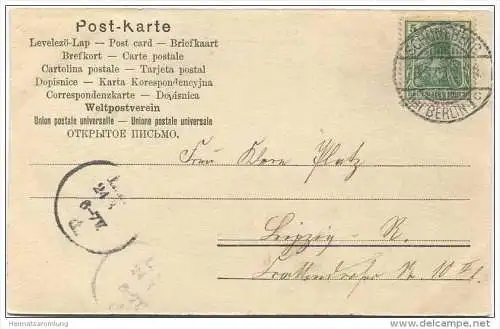 Post-Karte
Levelező-Lap — Post card — Briefkaart
Brefkort — Carte postale
Cartolina postale — Tarjeta postal
Dopisnice — Karta Korespondencyjna
Correspondenzkarte — Dopisnica
Weltpostverein
Union postale universelle — Unione postale universale
ОТКРЫТОЕ ПИСЬМО.
SCHÖNEBERG
BERLIN 1 c
Frau Klara Platz
Leipzig - R.
24
6-7N
Heimatsammlung
oldthing.de